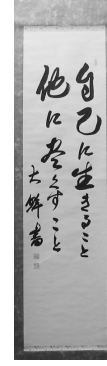 自己に生きること
他に尽くすこと
大鮮書